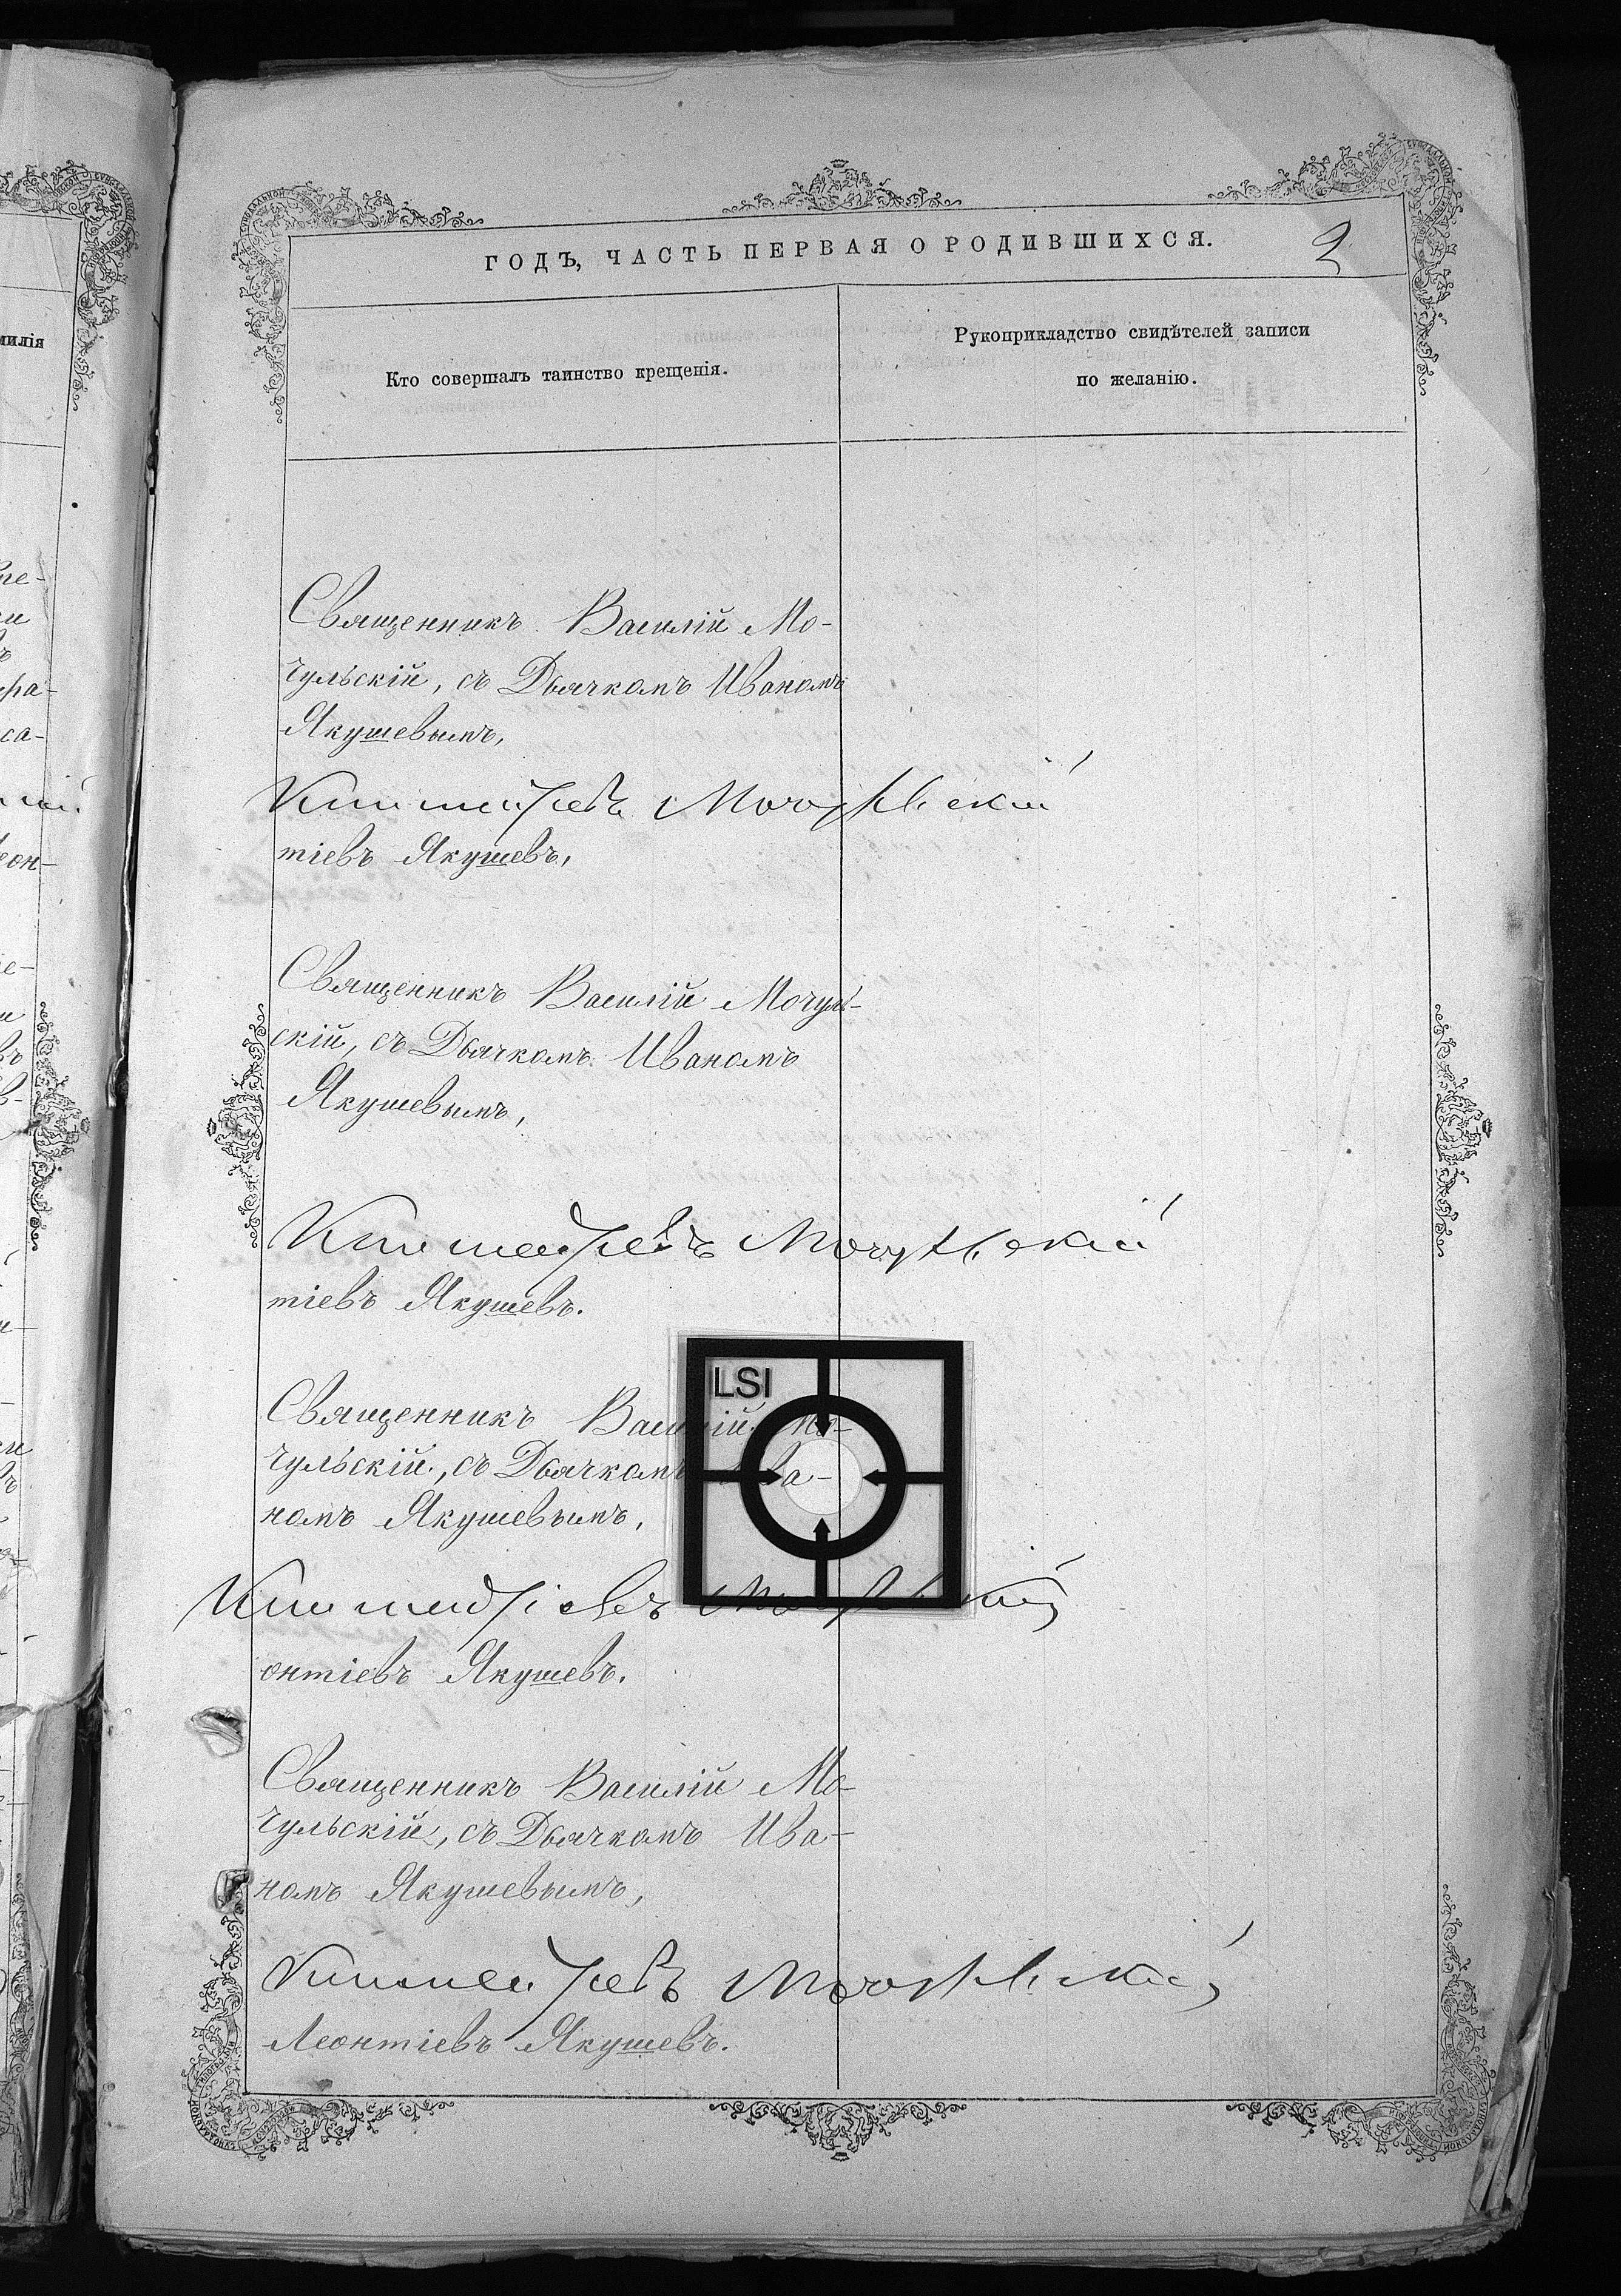 милія
ГОДЪ, ЧАСТЬ ПЕРВАЯ О РОДИВШИХСЯ.
2
Кто совершалъ таинство крещенія.
Рукоприкладство свидѣтелей записи
по желанію.
Священникъ Василій Мо-
чульскій, съ Дьячкомъ Иваномъ
Якушевымъ,
Мочульскій
тіевъ Якушевъ,
Священникъ Василій Мочуль-
скій, съ Дьячкомъ Иваномъ
Якушевымъ,
Мочульскій
тіевъ Якушевъ.
LSI
Священникъ Василій Мо-
чульскій, съ Дьячкомъ Ива-
номъ Якушевымъ,
онтіевъ Якушевъ.
Священникъ Василій Мо-
чульскій, съ Дьячкомъ Ива-
номъ Якушевымъ,
Мочульскій
Леонтіевъ Якушевъ.